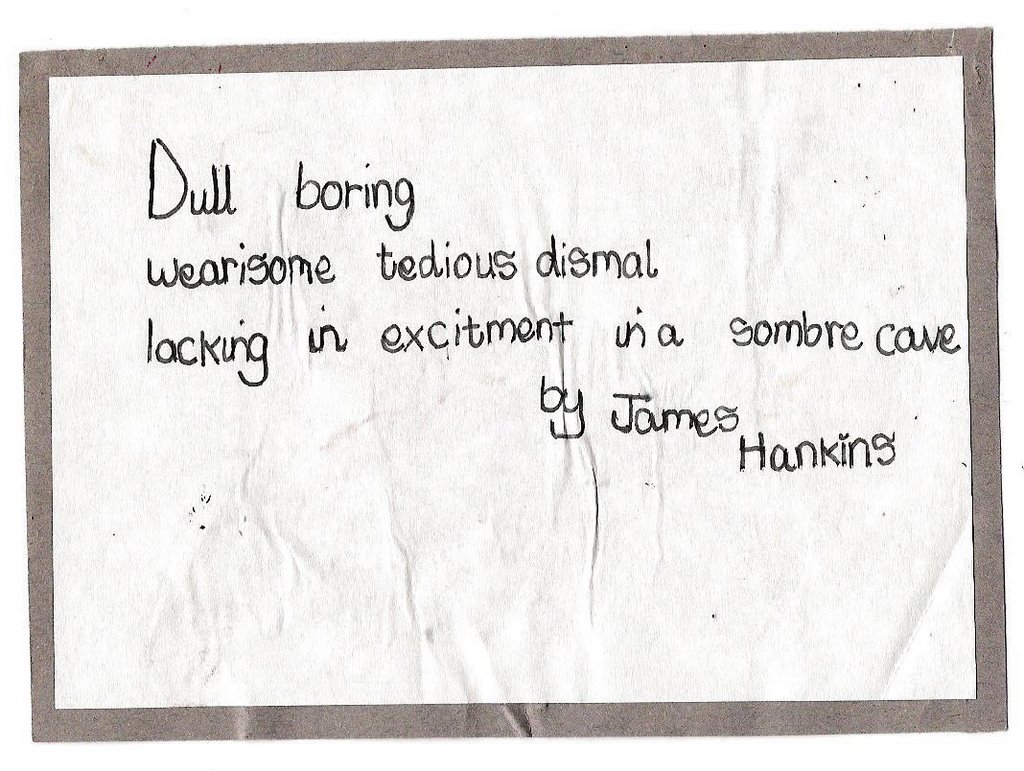 Dull boring
wearisome tedious dismal
lacking in excitment in a sombre cave
by James
Hankins